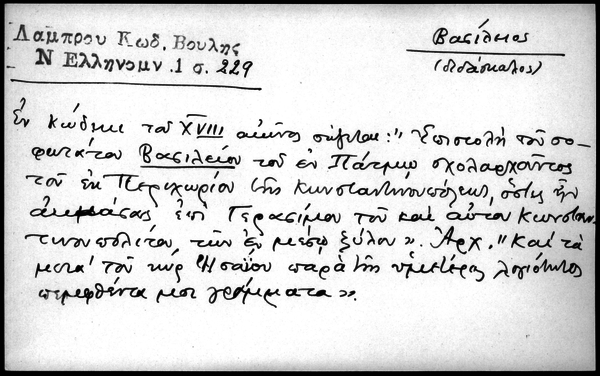 Λάμπρου Κωδ. Βουλης
Ν Ελληνομν .1 σ. 229
Βασίλειος
(διδάσκαλος)
Ἐν κώδικι τοῦ XVIII αἰῶνος σώζεται: "Ἐπιστολὴ τοῦ σο-
φωτάτου Βασιλείου τοῦ ἐν Πάτμῳ σχολαρχοῦντος
τοῦ ἐκ Περιχωρίου τῆς Κωνσταντινουπόλεως, ὅστις ἦν
ἀκμάσας ἐπὶ Γερασίμου τοῦ καὶ αὐτοῦ Κωνσταν-
τινουπολίτου, τῶν ἐν μέσῳ ξύλου». Ἀρχ. "Καὶ τὰ
μετὰ τοῦ κὺρ Ἡσαΐου παρὰ τῆς ὑμετέρας λογιότητος
πεμφθέντα μοι γράμματα».